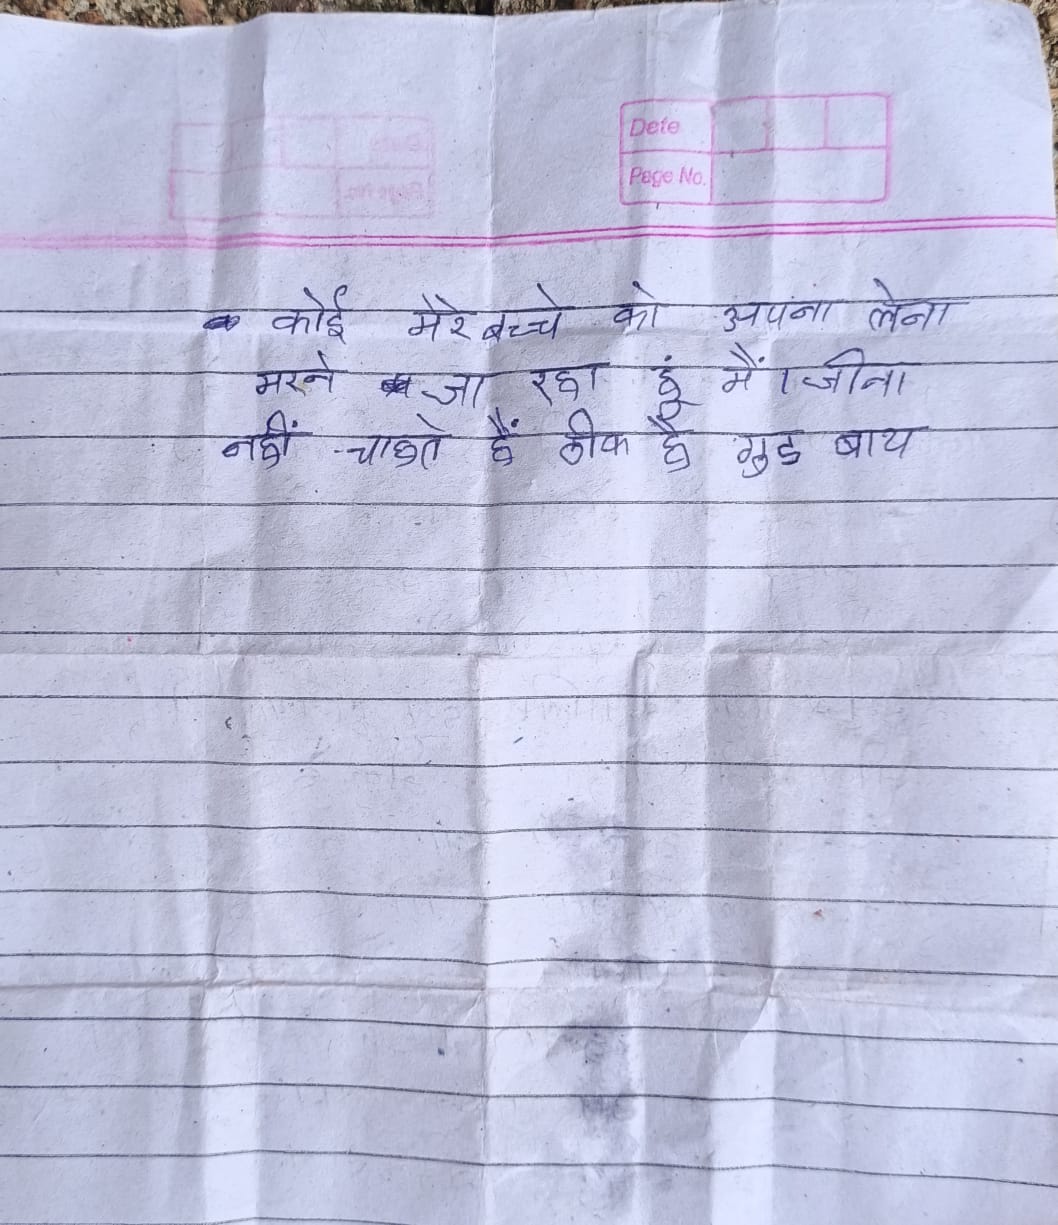 Date
Page No.
कोई मेरे बच्चे को अपना लेना
मरने जा रहा हूं मैं। जीना
नहीं चाहते हैं ठीक है गुड बाय